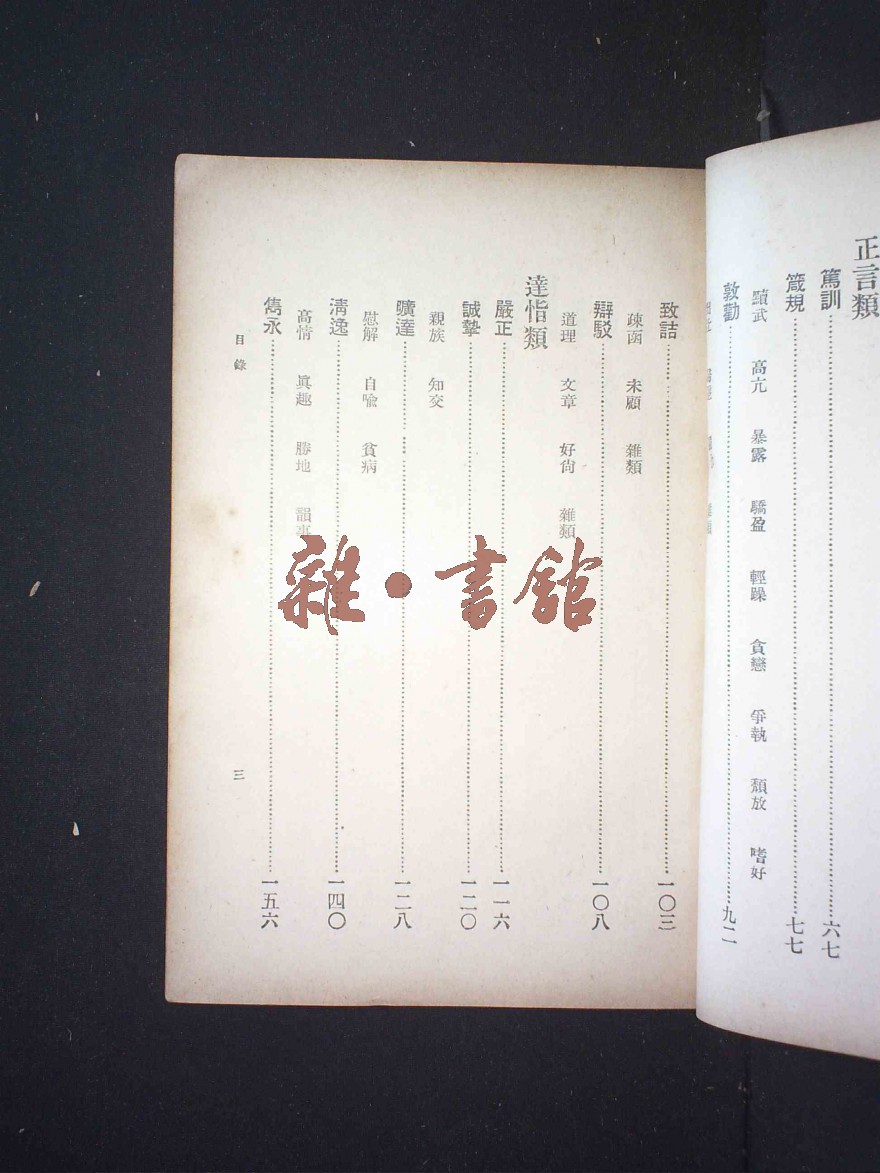 正言類
篤訓 六七
箴規 七七
黷武 高亢 暴露 驕盈 輕躁 貪戀 爭執 頹放 嗜好
敦勸 九二
致詰 一〇三
疎函 未顧 雜類
辯駁 一〇八
道理 文章 好尙 雜類
達恉類
嚴正 一一六
誠摯 一二〇
親族 知交
曠達 一二八
慰解 自喩 貧病
淸逸 一四〇
高情 眞趣 勝地 韻事
雋永 一五六
目錄
三
雜·書館